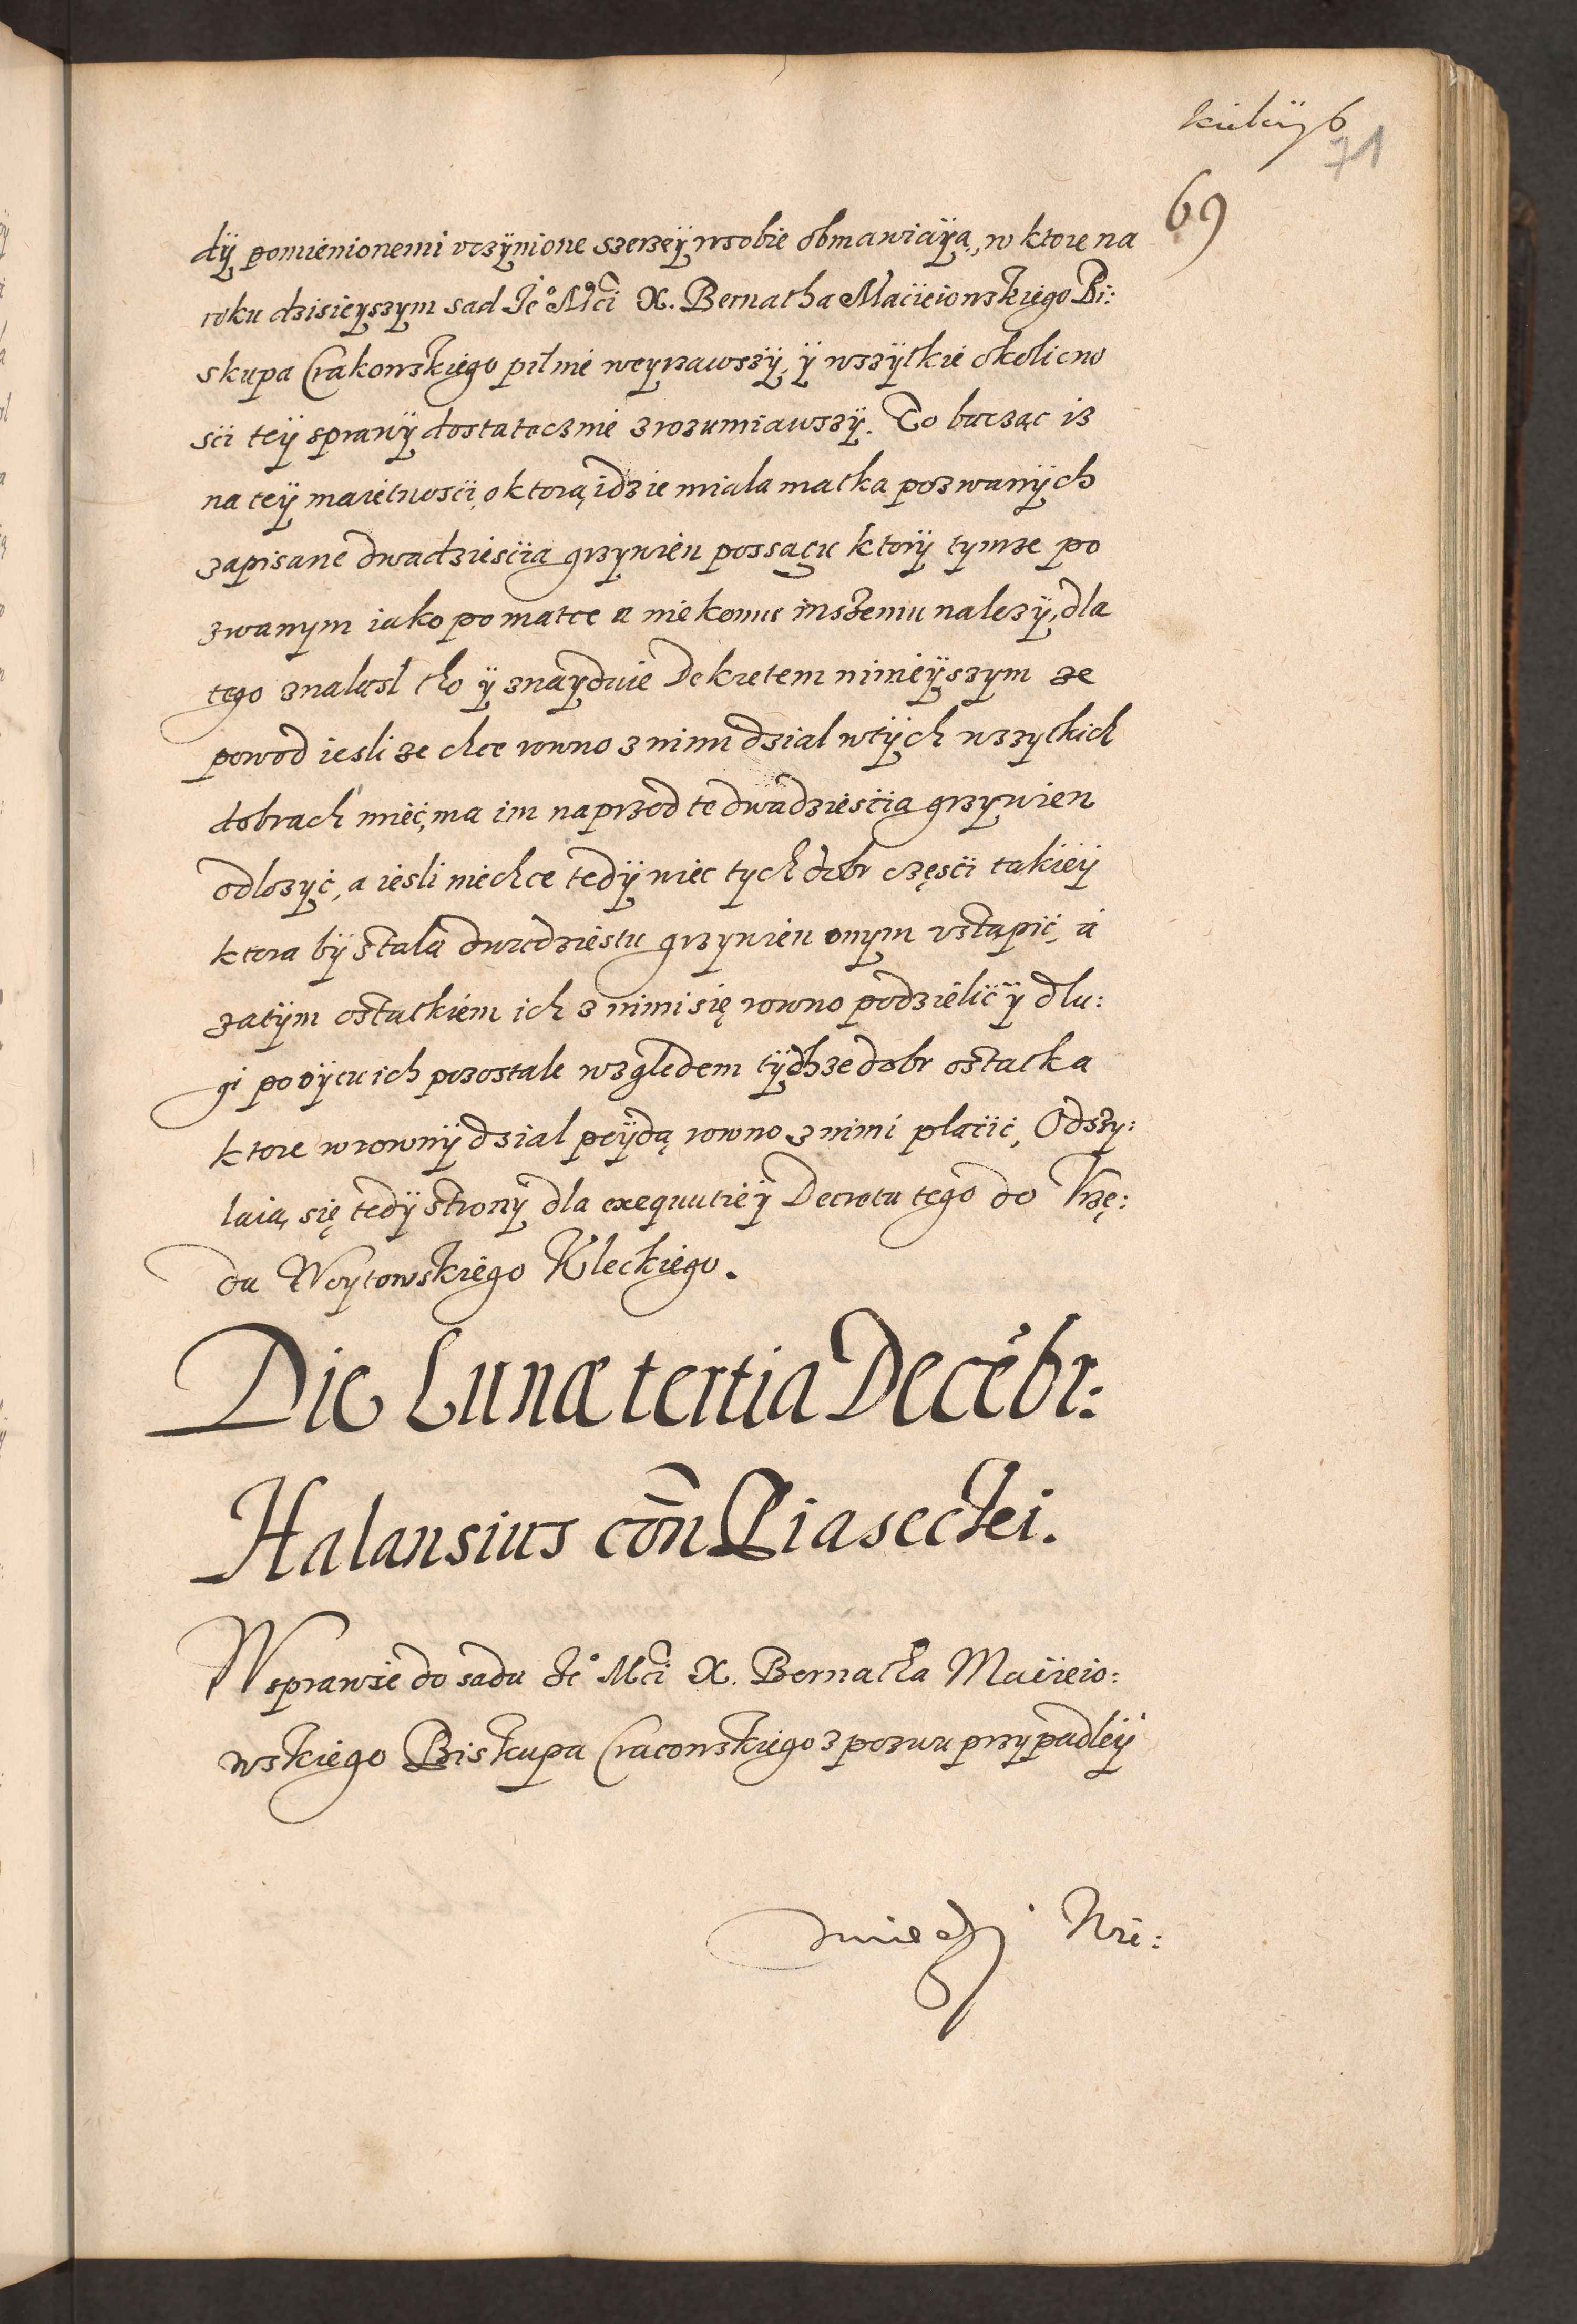 71
69
dÿ pomienionemi vczÿnione szerzeÿ wsobie obmawiaÿą, w ktore na
roku dzisieÿszym sad Je° Mći X. Bernatha Macieiowskiego Bi:
skupa Crakowskiego pilnie weÿrzawszÿ, ÿ wszÿtkie okolicno
sci teÿ sprawÿ dostatecznie zrozumiawszÿ. To bacząc iz
na teÿ maiętnosci, o ktorą idzie miala matka pozwanÿch
zapisane dwadziescia grzÿwien possagu ktorÿ tymze po
zwanym iako po matce a niekomu inszemu nalezÿ, dla
tego znalazl tho ÿ znaÿduie Dekretem ninieÿszym ze
powod iesli ze chce rowno z nimi dzial wtÿch wszytkich
dobrach mieć, ma im naprzod te dwadziescia grzywien
odlozyć, a iesli niechce tedÿ niec tych dobr częsci takieÿ
ktora bÿ stala dwudziestu grzywien onym vstąpić, á
zatÿm ostatkiem ich z nimi się rowno podzielić ÿ dlu:
gi po oÿcu ich pozostale wzgledem tÿchze dobr ostatka
ktore w rownÿ dzial poÿdą rowno z nimi placić, Odszy:
laią, się tedÿ stronÿ dla exequutieÿ Decretu tego do Vrzę:
du Woytowskiego Kleckiego.
Die Lunæ tertia Decẽbr:
Halansius coñ Piaseckei.
W sprawie do sadu Je° Mći X. Bernatha Macieio:
wskiego Biskupa Cracowskiego z pozwu przypadleÿ
miedzÿ Wa: